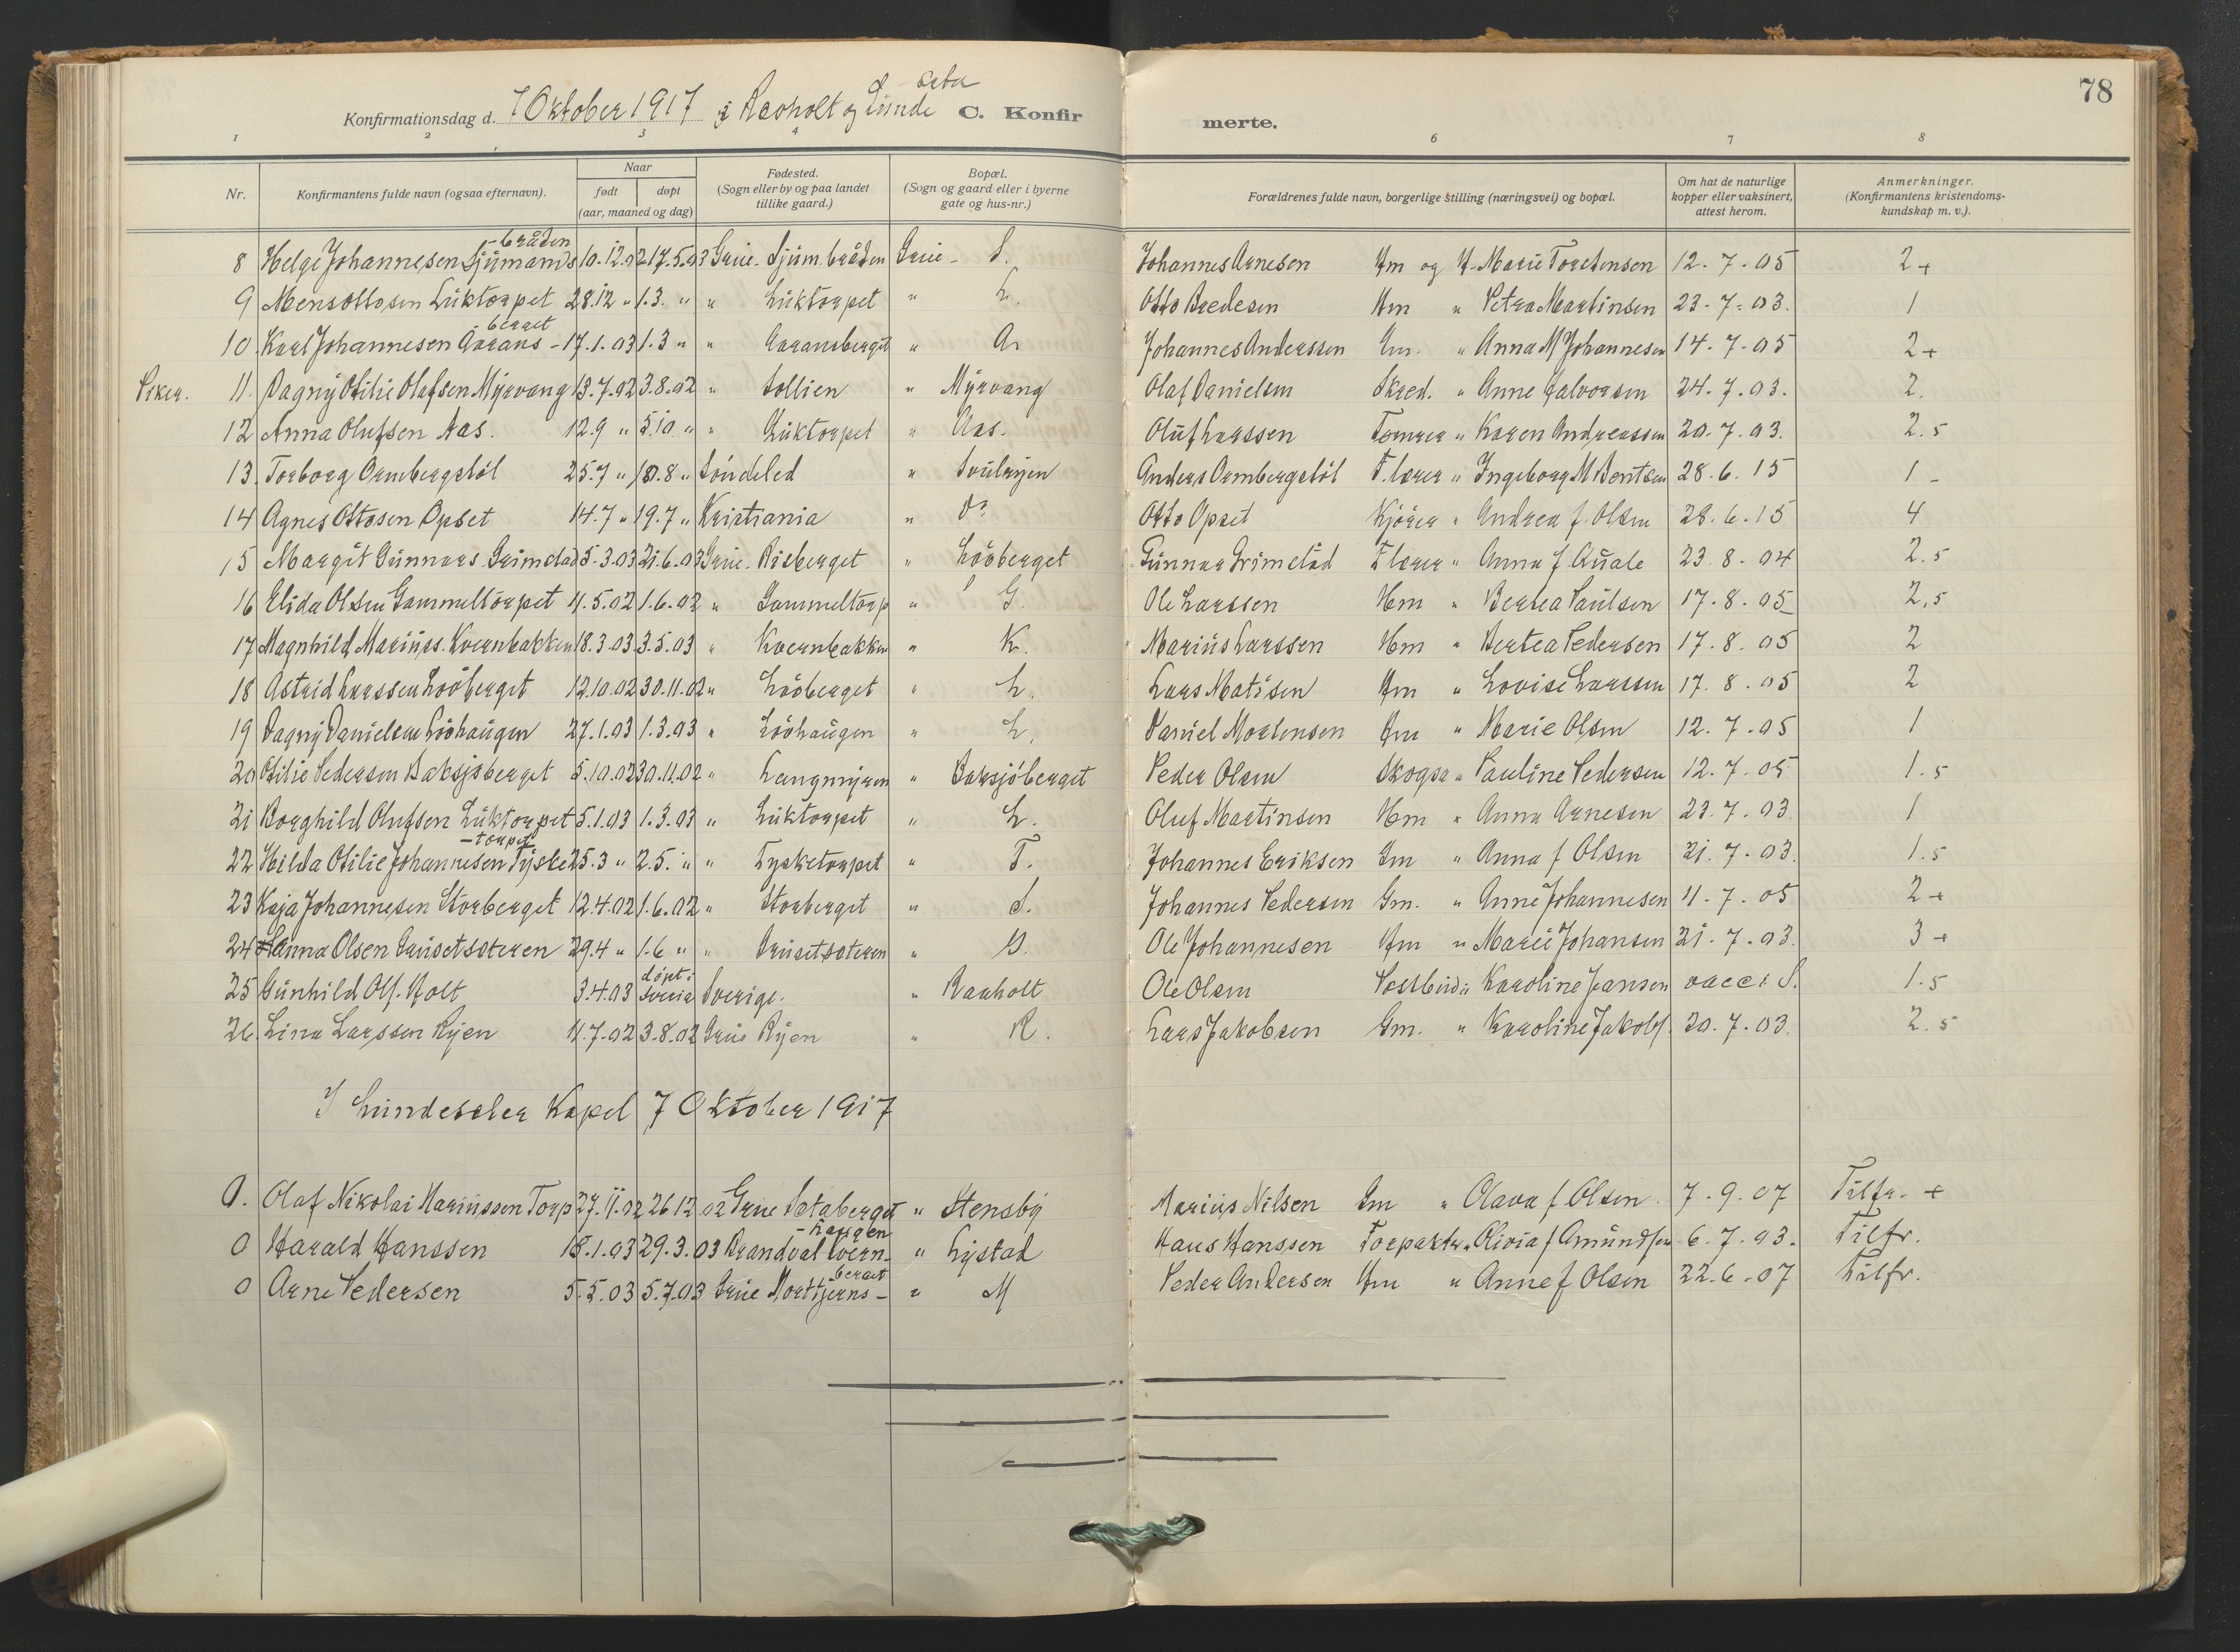 78
Konfirmationsdag d. 7 Oktober 1917 i Revholt og Lunde C. Konfirmerte.
1 2 3 4 6 7 8
Nr. Konfirmantens fulde navn (ogsaa efternavn). Naar født døpt (aar, maaned og dag) Fødested. (Sogn eller by og paa landet tillike gaard.) Bopæl. (Sogn og gaard eller i byerne gate og hus-nr.) Forældrenes fulde navn, borgerlige stilling (næringsvei) og bopæl. Om hat de naturlige kopper eller vaksinert, attest herom. Anmerkninger. (Konfirmantens kristendoms-kundskap m. v.).
8 Helge Johannesen Sjümands-bråden 10.12.02 17.5.03 Grue - Sjüm.bråden Grue - S. Johannes Arnesen Hm og H. Marie Torstensen 12-7-05 2+
9 Mens Ottosen Lüktorpet 28.12 " 1.3. " " Lüktorpet " L. Otto Bredesen Hm " Petra Martinsen 23-7-03. 1
10. Karl Johannesen Aarans-berget 17.1.03 1.3 " " Aaransberget " A. Johannes Anderssen Gm. " Anna M Johannesen 14-7-05 2+
11. Dagny Otilie Olafsen Myrvang 13.7.02 3.8.02 " Sollien " Myrvang Olaf Danielsen Skred. " Anne Halvorsen 24-7-03. 2.
12 Anna Olufsen Aas. 12.9 " 5.10 " " Lüktorpet " Aas. Oluf Larssen Tømrer " Karen Andreassen 20.7.03. 2.5
13. Torborg Ormbergstøl 25.7 " 10.8 " Søndeled " Svulryen Anders Ormbergstøl F.lærer " Ingeborg M Bentsen 28.6.15 1-
14 Agnes Ottosen Opset 14.7 " 19.7 " Kristiania " do. Otto Opset Kjører " Andrea f. Olsen 28.6.15 4
15 Margit Gunnars. Grimstad 5.3.03 21.6.03 Grue - Risberget " Lööberget Gunnar Grimstad F lærer " Anna f. Quale 23.8.04 2.5
16 Elida Olsen Gammeltorpet 4.5.02 1.6.02 " Gammeltorp " G. Ole Larssen Hm " Bertea Paulsen 17-8-05 2.5
17 Magnhild Mariuss. Kvernbakken 18.3.03 3.5.03 " Kvernbakken " K. Marius Larssen Hm " Bertea Pedersen 17.8.05 2
18 Astrid Larssen Lööberget 12.10.02 30.11.02 " Lööberget " L. Lars Matisen Hm " Lovise Larssen 17.8.05 2
19 Dagny Danielsen Lööhaugen 27.1.03 1.3.03 " Lööhaugen " L. Daniel Mortensen Hm " Marie Olsen 12.7.05 1
20 Otilie Pedersen Baksjøberget 5.10.02 30.11.02 " Langmyren " Baksjöberget Peder Olsen Skogsa " Pauline Pedersen 12.7.05 1.5
21 Borghild Olufsen Lüktorpet 5.1.03 1.3.03 " Lüktorpet " L. Oluf Martinsen Hm " Anna Arnesen 23.7.03. 1
22 Hilda Otilie Johannesen Tyske-torpet 25.3 " 2.5. " " Tysketorpet " T. Johannes Eriksen Gm " Anna f Olsen 21.7-03. 1.5
23 Kaja Johannesen Storberget 12.4.02 1.6.02 " Storberget " S. Johannes Pedersen Gm. " Anne Johannesen 11-7-05 2+
24 Hanna Olsen Grusetsæteren 29.4 " 1.6 " " Grusetsæteren " G. Ole Johannesen Hm " Marie Johansen 21.7.03. 3+
25 Gunhild Ols. Holt 3.4.03 døpt i Sverig Sverige. " Ravholt Ole Olsen Postbud " Karoline Jeansen vacc. i S. 1.5
26. Lina Larssen Ryen 11.7.02 3.8.02 Grue Ryen " R. Lars Jakobsen Gm. " Karoline Jakobs. 20.7.03. 2.5
I Lundesæter Kapel 7 Oktober 1917
0. Olaf Nikolai Mariussen Torp 27.11.02 26 12 02 Grue Sætaberget " Stensby Marius Nilsen Gm " Olava f Olsen 7-9-07 Tilfr. +
0 Harald Hanssen 18.1.03 29.3.03 Brandval Kvern-haugen " Lystad Hans Hanssen Forpakter " Olivia f Amundsen 6.7.03. Tilfr.
0 Arne Pedersen 5.5.03 5.7.03 Grue Morttjerns-berget " M Peder Andersen Hm " Anne f Olsen 22.6-07 Tilfr.